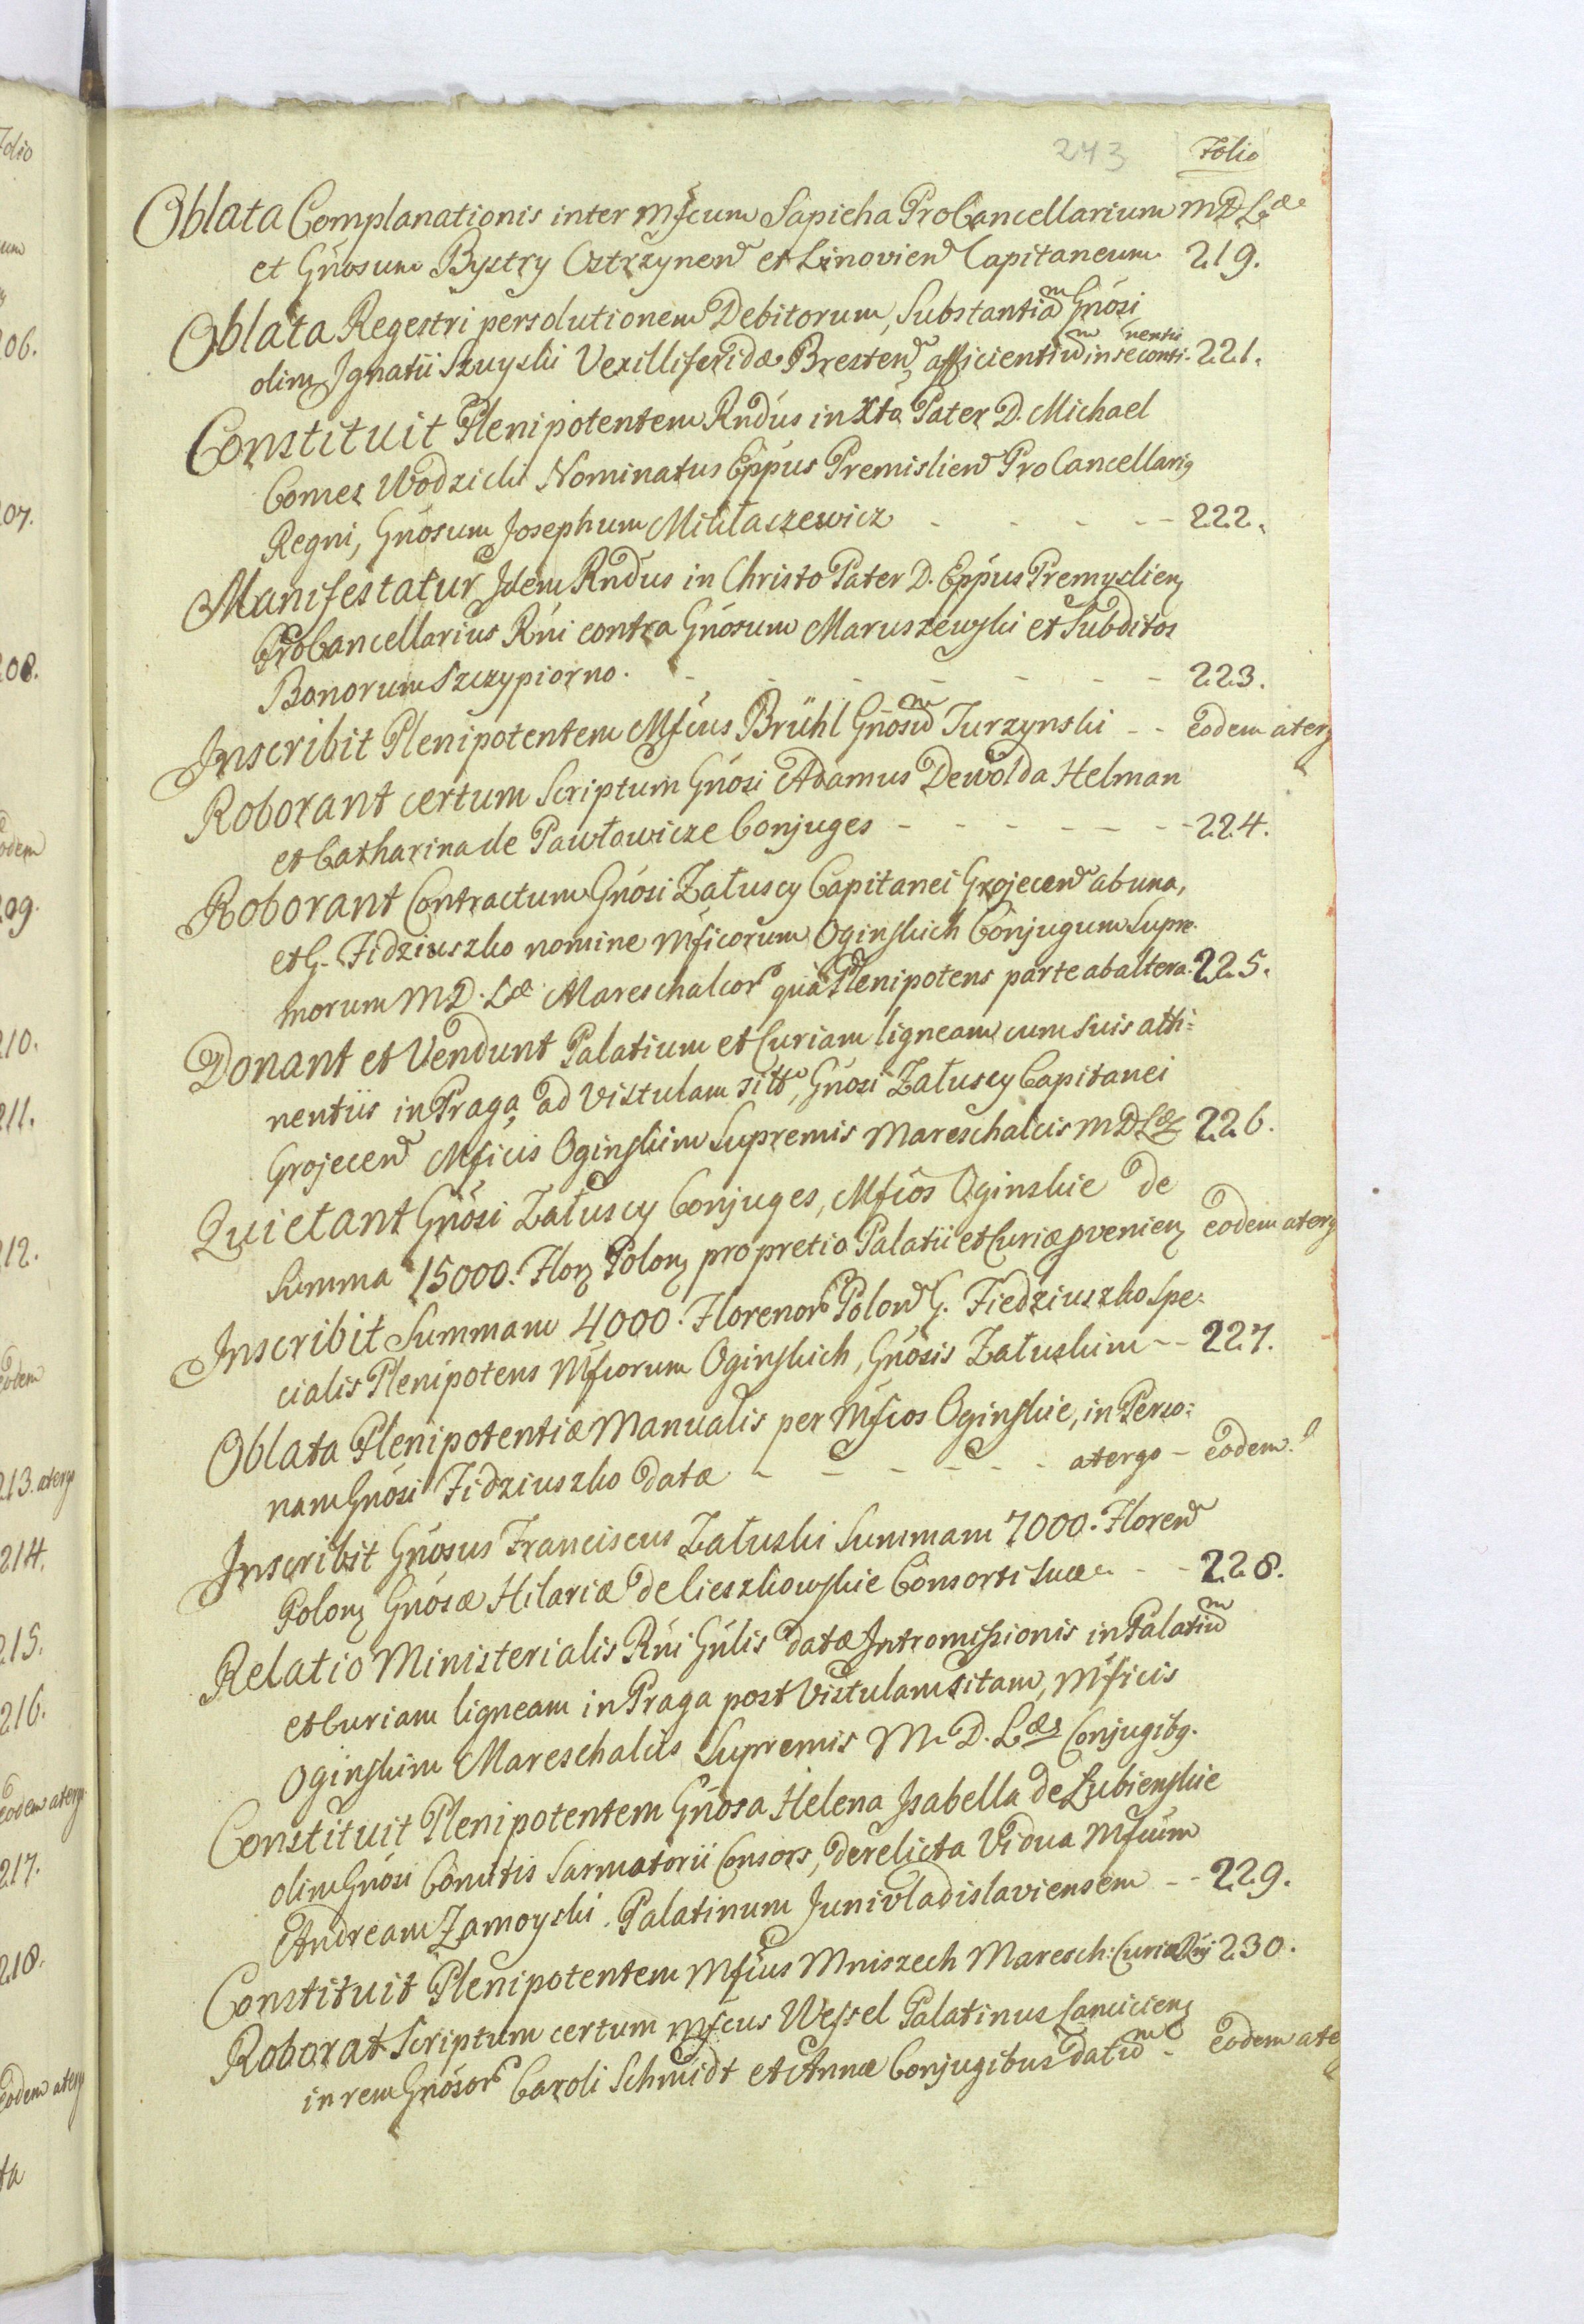 243 Folio
Oblata Complanationis inter Mfcum Sapieha ProCancellarium MDLæ
et Gnosum Bystry Ostrzynen et Linovien Capitaneum 219.
Oblata Regestri persolutionem Debitorum, Substantiam Gnosi
olim Ignatii Szuyski Vexilliferidæ Bresten afficientium in se continentis 221.
Constituit Plenipotentem Rndus in Xto Pater D. Michael
Comes Wodzicki Nominatus Eppus Premislien ProCancellarig
Regni, Gnosum Josephum Mikłaszewicz - - - - - 222.
Manifestatur Idem Rndus in Christo Pater D. Eppus Premyslien
ProCancellarius Rni contra Gnosum Maruszewski et Subditos
Bonorum Szczypiorno. - - - - - - - 223.
Inscribit Plenipotentem Mfcus Brühl Gnosum Turzynski - - eodem aterg
Roborant certum Scriptum Gnosi Adamus Dewolda Helman
et Catharina de Pawłowicze Conjuges - - - - - - - 224.
Roborant Contractum Gnosi Załuscy Capitanei Grojecen ab una,
et G. Fidziuszko nomine Mficorum Oginskich Conjugum Supre-
morum MD. Læ Mareschalcor quà Plenipotens parte ab altera. 225.
Donant et Vendunt Palatium et Curiam ligneam cum suis atti=
nentiis in Praga ad Vistulam sito, Gnosi Załuscy Capitanei
Grojecen Mficis Oginskim Supremis Mareschalcis MDLæ 226.
Quietant Gnosi Załuscy Conjuges, Mfcos Oginskie de
Summa 15000. Flor Polon pro pretio Palatii et Curiæ pvenien eodem aterg
Inscribit Summam 4000. Florenor Polon G. Fiedziuszko Spe-
cialis Plenipotens Mfcorum Oginskich, Gnosis Załuskim - - 227.
Oblata Plenipotentiæ Manualis per Mfcos Oginskie, in Perso=
nam Gnosi Fidziuszko datæ - - - - - - atergo - eodem.
Inscribit Gnosus Franciscus Załuski Summam 7000. Floren
Polon Gnosæ Hilariæ de Cieszkowskie Consorti suæ - - 228.
Relatio Ministerialis Rni Gnlis datæ Intromissionis in Palatium
et Curiam ligneam in Praga post Vistulam sitam, Mficis
Oginskim Mareschalcis Supremis M. D. Læ Conjugibg.
Constituit Plenipotentem Gnosa Helena Isabella de Łubienskie
olim Gnosi Comitis Sarmatorii Consors, derelicta Vidua Mfcum
Andream Zamoyski Palatinum Junivladislaviensem - - 229.
Constituit Plenipotentem Mfcus Mniszech Maresch: Curiæ Rni 230.
Roborat Scriptum certum Mfcus Wessel Palatinus Lancicien
in rem Gnosor Caroli Schmidt et Annæ Conjugibus datum - eodem ate